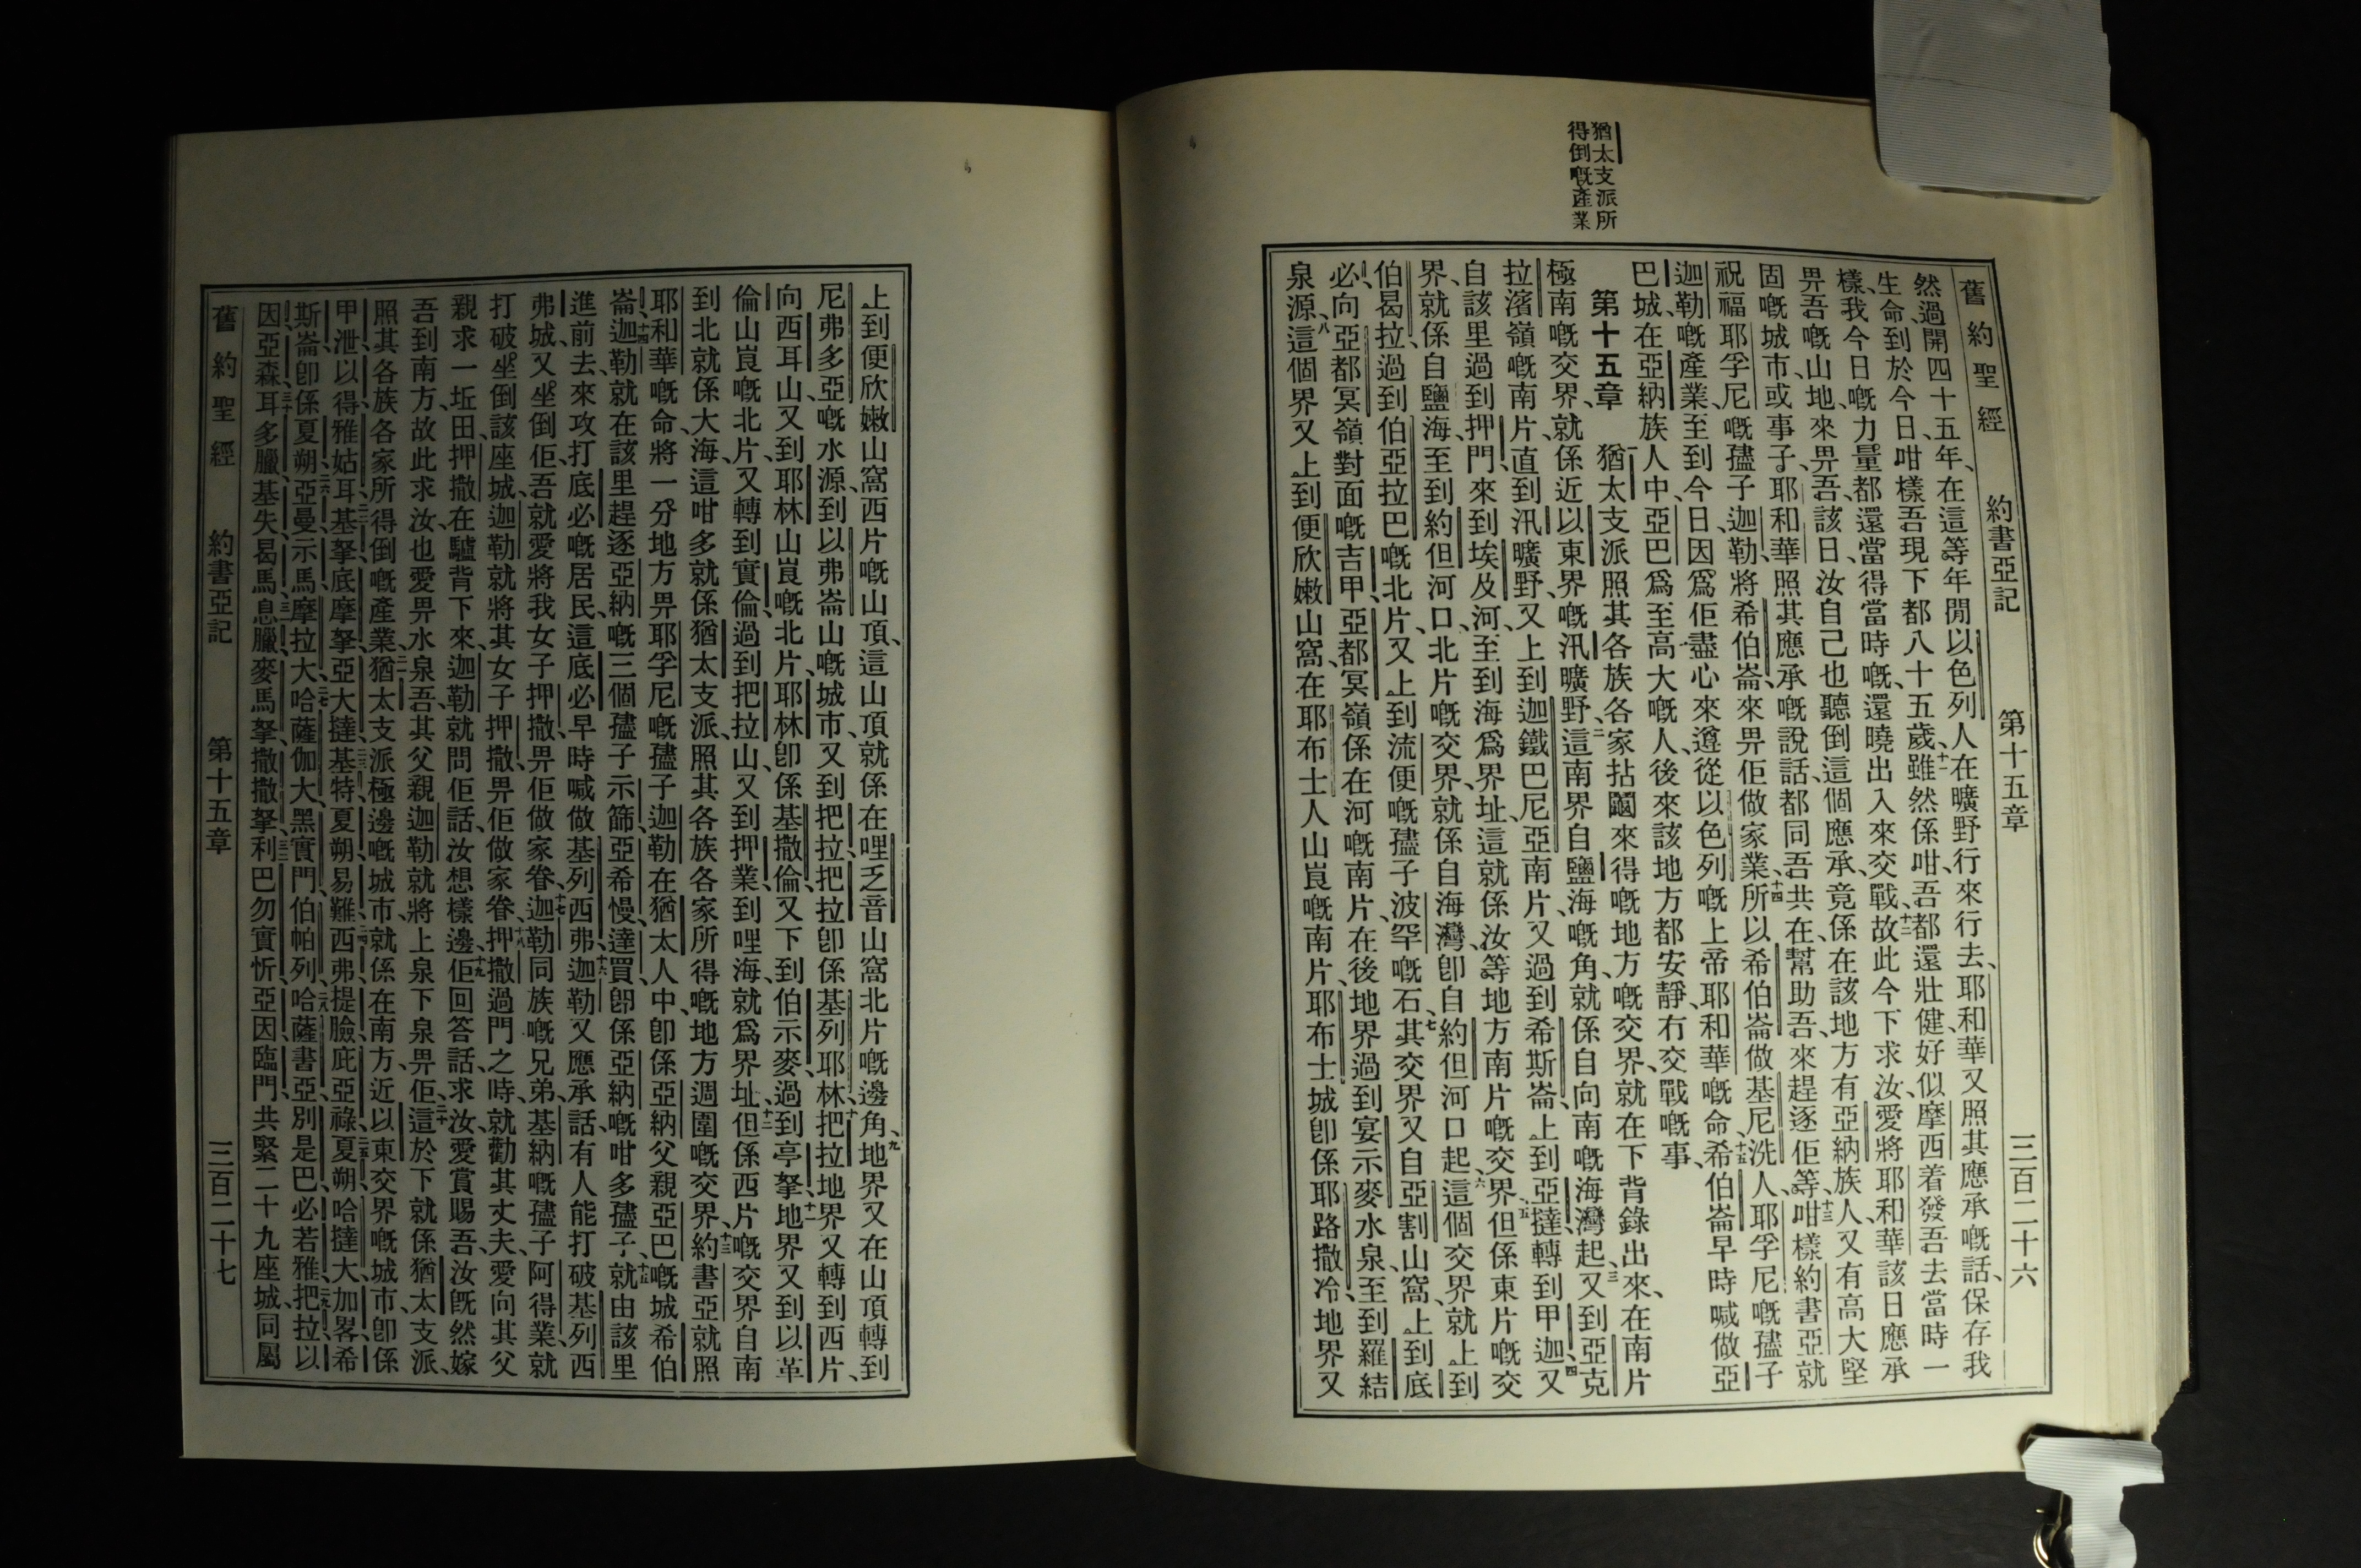 舊約聖經 約書亞記 第十五章 三百二十六
然、過開四十五年、在這等年閒以色列人在曠野行來行去、耶和華又照其應承嘅話、保存我
生命、到於今日、咁樣吾現下都八十五歲、十一雖然係咁、吾都還壯健、好似摩西着發吾去當時一
樣、我今日嘅力量、都還當得當時嘅、還曉出入來交戰、十二故此今下求汝、愛將耶和華該日應承
畀吾嘅山地、來畀吾、該日汝自己也聽倒這個應承、竟係在該地方有亞納族人、又有高大堅
固嘅城市、或事子、耶和華照其應承嘅說話、都同吾共在、幫助吾、來趕逐佢等、十三咁樣約書亞就
祝福耶孚尼嘅孻子迦勒、將希伯崙、來畀佢做家業、十四所以希伯崙做基尼洗人、耶孚尼嘅孻子
迦勒嘅產業、至到今日、因爲佢盡心來遵從以色列嘅上帝耶和華嘅命、十五希伯崙早時喊做亞
巴城、在亞納族人中、亞巴爲至高大嘅人、後來該地方都安靜冇交戰嘅事、
第十五章 一猶太支派照其各族各家拈鬮來得嘅地方嘅交界、就在下背錄出來、在南片
極南嘅交界、就係近以東界嘅汛曠野、二這南界自鹽海嘅角、就係自向南嘅海灣起、三又到亞克
拉濱嶺嘅南片、直到汛曠野、又上到迦鐵巴尼亞南片、又過到希斯崙、上到亞撻、轉到甲迦、四又
自該里過到押門、來到埃及河、至到海爲界址、這就係汝等地方南片嘅交界、五但係東片嘅交
界、就係自鹽海、至到約但河口、北片嘅交界、就係自海灣、卽自約但河口起、六這個交界、就上到
伯曷拉、過到伯亞拉巴嘅北片、又上到流便嘅孻子波罕嘅石、七其交界又自亞割山窩、上到底
必、向亞都冥嶺對面嘅吉甲、亞都冥嶺係在河嘅南片、在後地界過到宴示麥水泉、至到羅結
泉源、八這個界又上到便欣嫩山窩、在耶布士人山崀嘅南片、耶布士城卽係耶路撒冷、地界又
猶太支派所
得倒嘅產業
上到便欣嫩山窩西片嘅山頂、這山頂就係在哩乏音山窩北片嘅邊角、九地界又在山頂轉到
尼弗多亞嘅水源、到以弗崙山嘅城市、又到把拉、把拉卽係基列耶林、十把拉地界又轉到西片、
向西耳山、又到耶林山崀嘅北片、耶林卽係基撒倫、又下到伯示麥、過到亭拏、十一地界又到以革
倫山崀嘅北片、又轉到實倫、過到把拉山、又到押業、到哩海、就爲界址、十二但係西片嘅交界自南
到北、就係大海、這咁多就係猶太支派、照其各族各家所得嘅地方週圍嘅交界、十三約書亞就照
耶和華嘅命、將一分地方畀耶孚尼嘅孻子迦勒、在猶太人中、卽係亞納父親亞巴嘅城希伯
崙、十四迦勒就在該里趕逐亞納嘅三個孻子、示篩、亞希慢、達買、卽係亞納嘅咁多孻子、十五就由該里
進前去、來攻打底必嘅居民、這底必早時喊做基列西弗、十六迦勒又應承話、有人能打破基列西
弗城、又坐倒佢、吾就愛將我女子押撒、畀佢做家眷、十七迦勒同族嘅兄弟、基納嘅孻子、阿得業、就
打破坐倒該座城、迦勒就將其女子押撒、畀佢做家眷、十八押撒過門之時、就勸其丈夫、愛向其父
親求一坵田、押撒在驢背下來、迦勒就問佢話、汝想樣邊、十九佢回答話、求汝、愛賞賜吾、汝旣然嫁
吾到南方、故此求汝、也愛畀水泉吾、其父親迦勒就將上泉下泉畀佢、二十這於下就係猶太支派、
照其各族各家所得倒嘅產業、猶太支派極邊嘅城市、就係在南方、近以東交界嘅城市、卽係